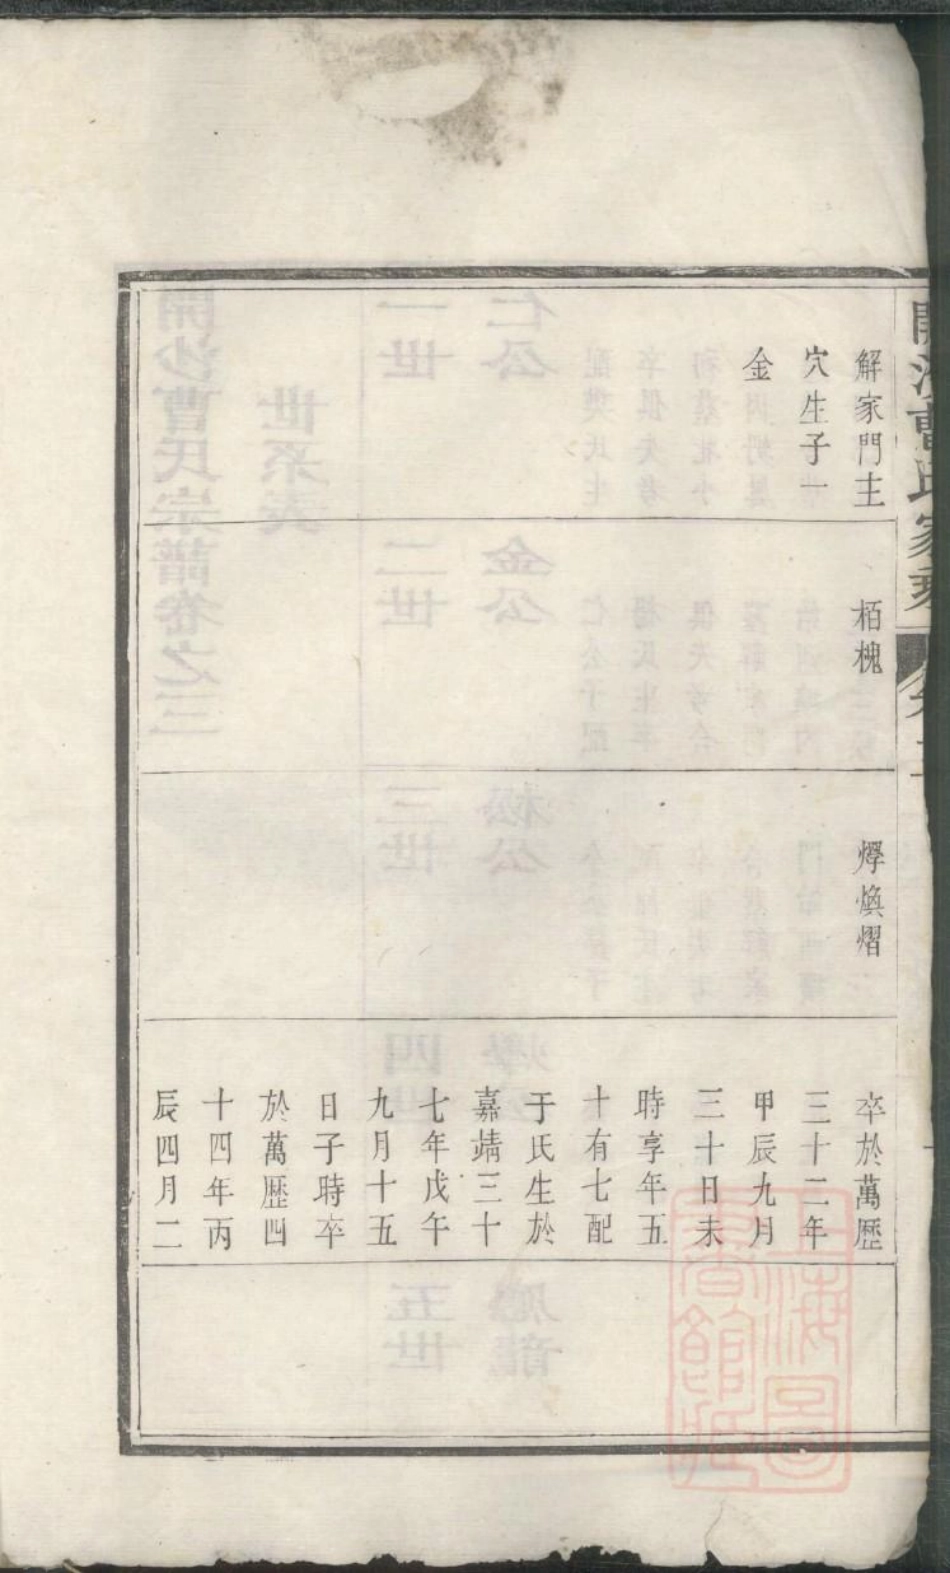 開沙曹氏家乘
解家門主
穴生子一
金
栢槐
焞煥熠
卒於萬歷
三十二年
甲辰九月
三十日未
時享年五
十有七配
于氏生於
嘉靖三十
七年戊午
九月十五
日子時卒
於萬歷四
十四年丙
辰四月二
上海圖
書館藏